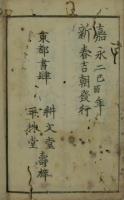 嘉永二己酉年
新春吉朝發行
東都書肆
耕文堂壽梓
平林堂